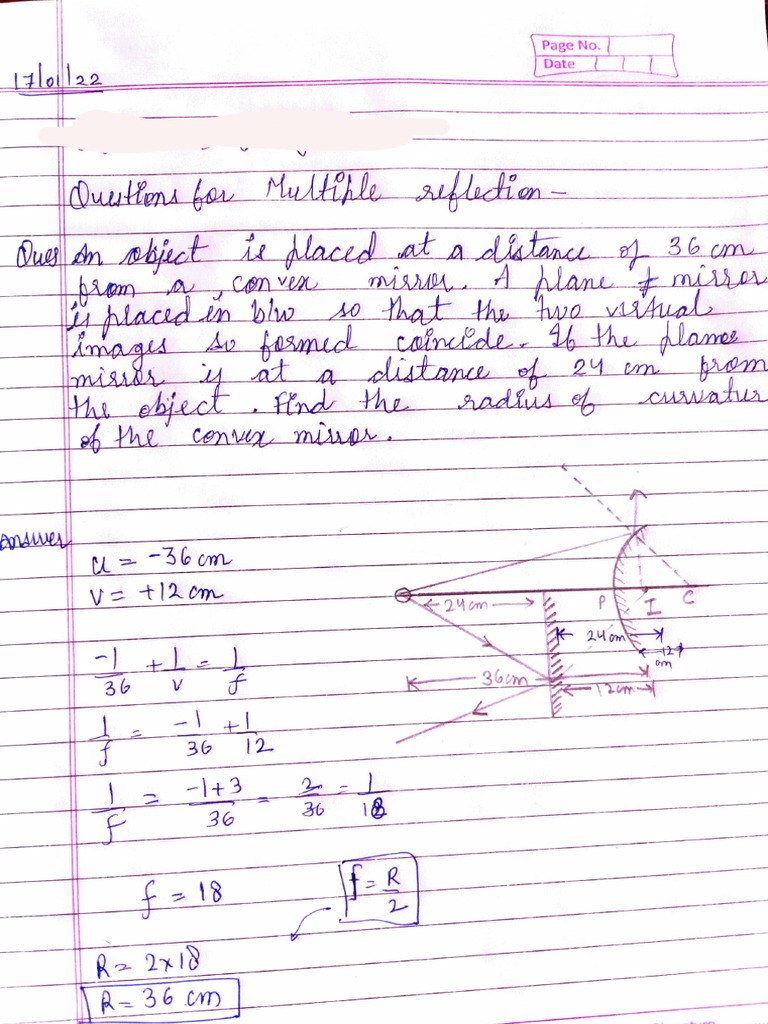 Page No.
Date
17/01/22
Questions for Multiple reflection -
Ques An object is placed at a distance of 36 cm
from a convex mirror. A plane mirror
is placed in b/w so that the two virtual
images so formed coincide. If the plane
mirror is at a distance of 24 cm from
the object. Find the radius of curvatur
of the convex mirror.
Answer
u = -36 cm
v = +12 cm
-1/36 + 1/v = 1/f
1/f = -1/36 + 1/12
1/f = -1+3/36 = 2/36 = 1/18
f = 18
f = R/2
R = 2×18
R = 36 cm
24cm
P I C
24cm
12 cm
36cm
12cm